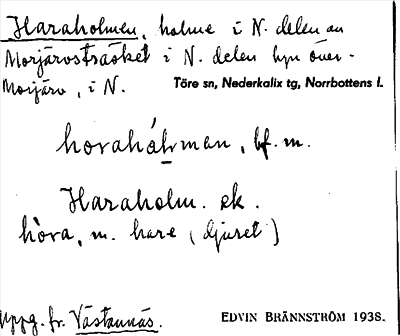 Haraholmen, holme i N. delen av
Morjärvsträsket i N. delen byn Över-
Morjärv, i N. Töre sn, Nederkalix tg, Norrbottens l.
horahólmen, bf. m.
Haraholm. ek.
hòra, m. hare (djuret)
Uppg. fr. Västannäs. EDVIN BRÄNNSTRÖM 1938.